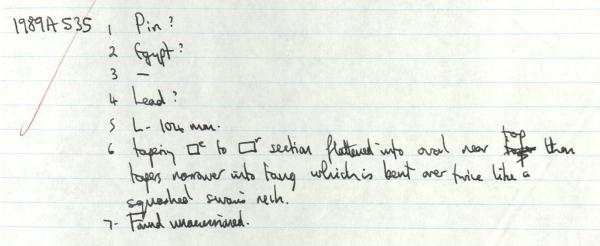 1989A535 1 Pin?
2 Egypt?
3 —
4 Lead?
5 L- 104 mm.
6 taping □c to □r section flattened into oval near top then
tapers narrower into tang which is bent over twice like a
squashed swan's neck.
7- Found unaccessioned.